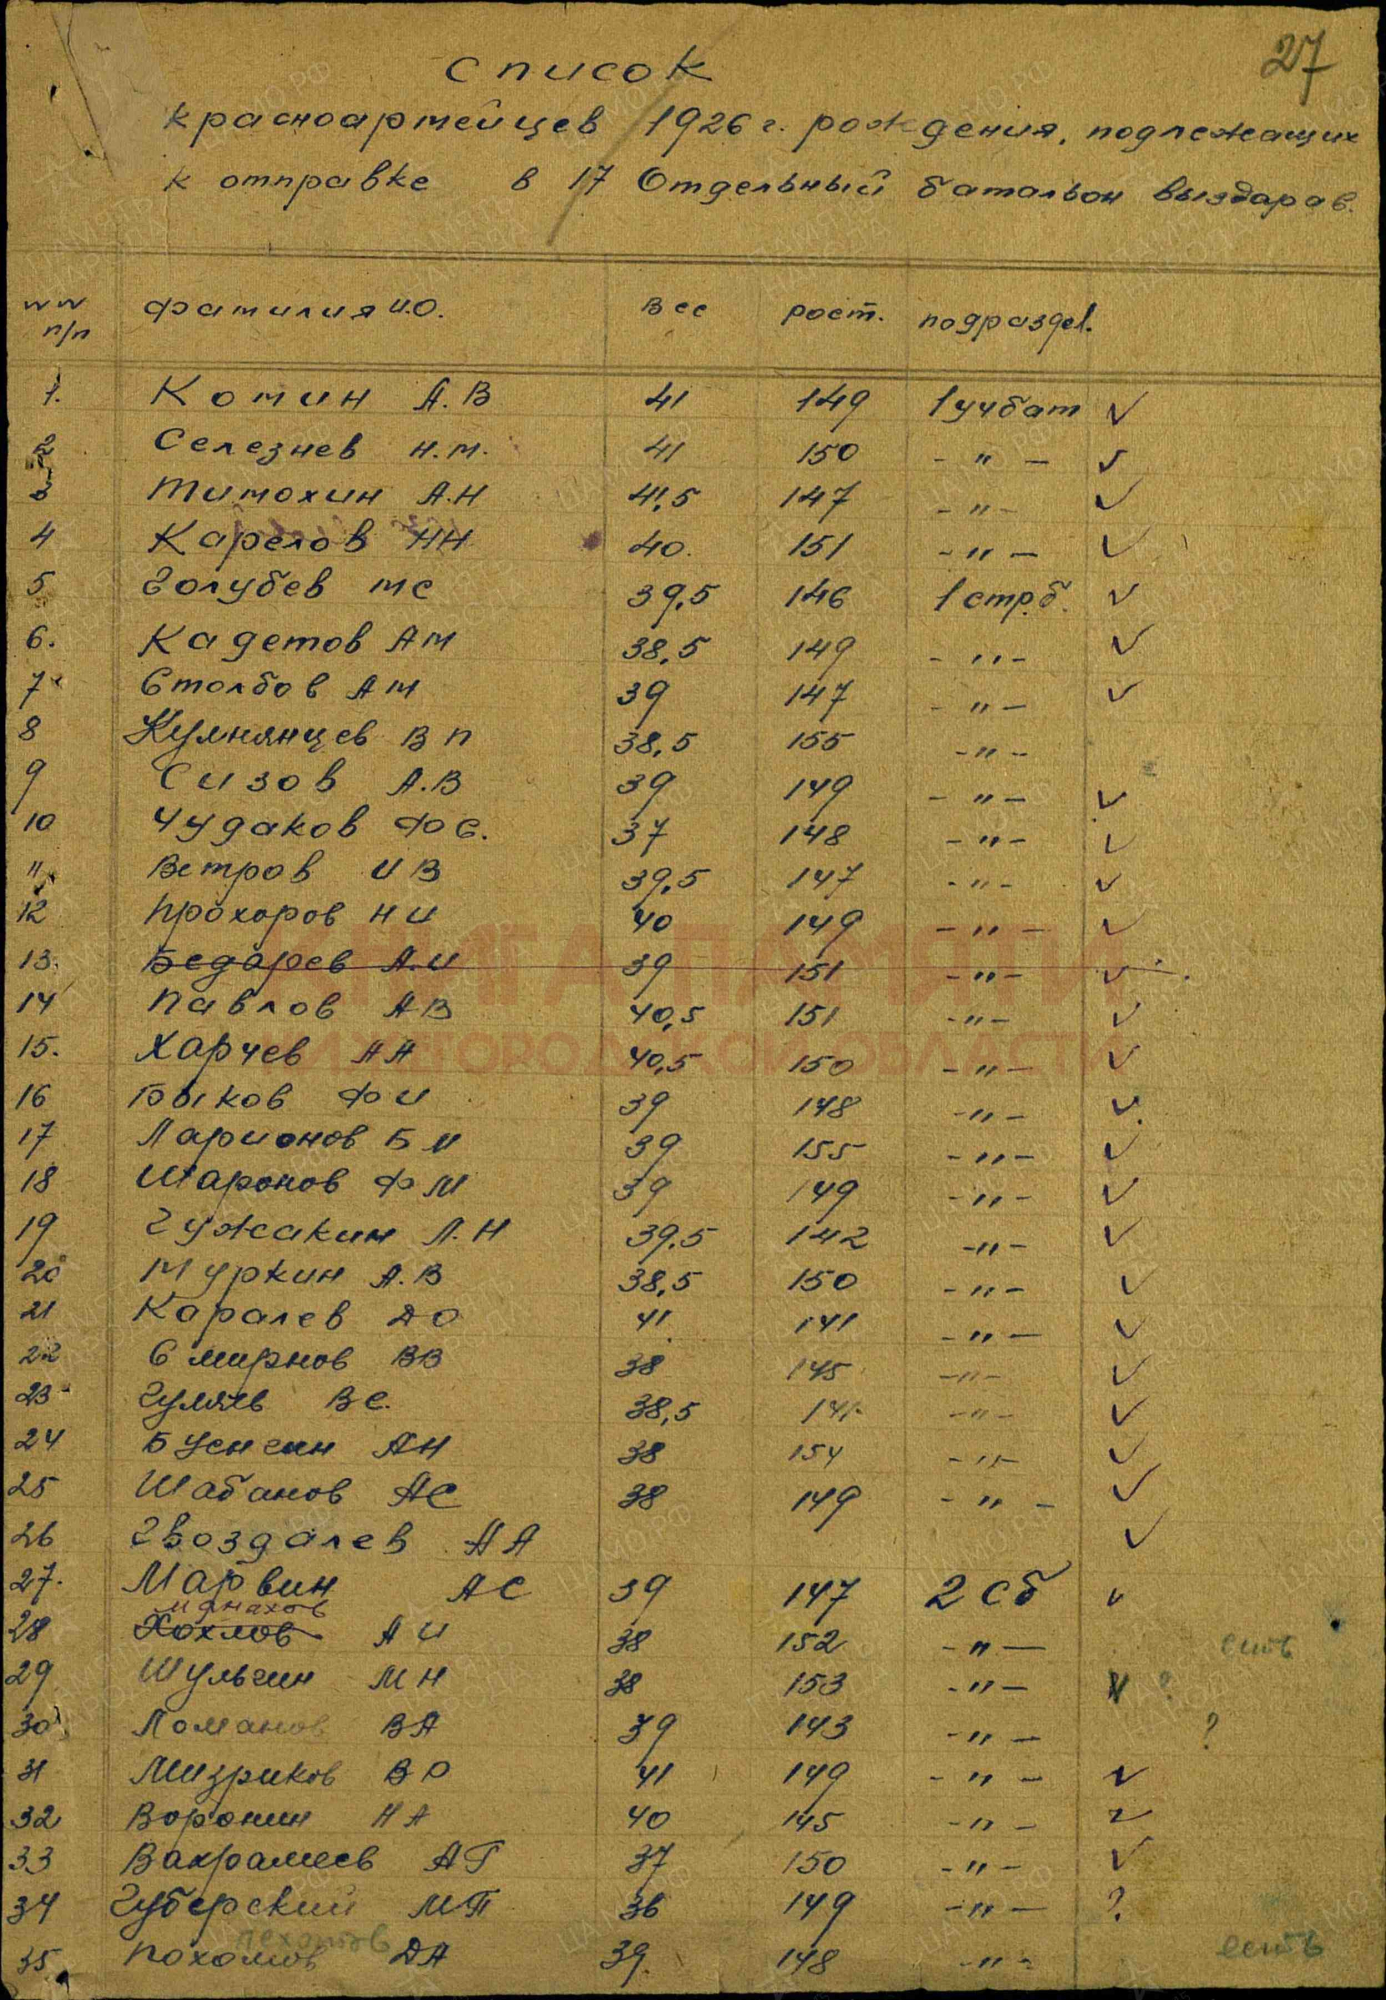 27
Список
красноармейцев 1926 г. рождения, подлежащих
к отправке в 17 Отдельный батальон выздарав.
NN п/п фамилия И.О. Вес рост. подраздел.
1. Комин А.В 41 149 1 учбат V
2 Селезнев Н.М. 41 150 - " - V
3 Тимохин А.Н 41,5 147 - " - V
4 Карелов НН 40. 151 - " - V
5 Голубев МС 39,5 146 1 стр.б. V
6. Кадетов АМ 38,5 149 - " - V
7 Столбов АМ 39 147 - " - V
8 Кумнянцев ВП 38,5 155 - " -
9 Сизов А.В 39 149 - " - V
10 Чудаков ФС. 37 148 - " - V
11 Ветров ИВ 39,5 147 - " - V
12 Прохоров НИ 40 149 - " - V
13. Бедарев А.И 39 151 - " - V
14 Павлов АВ 40,5 151 - " - V
15. Харчев АА 40,5 150 - " - V
16 Быков ФИ 39 148 - " - V
17 Ларионов БИ 39 155 - " - V
18 Шаронов ФМ 39 149 - " - V
19 Гужакин Л.Н 39,5 142 - " - V
20 Муркин А.В 38,5 150 - " - V
21 Каралев ДО 41 141 - " - V
22 Смирнов ВВ 38 145 - " - V
23 ВС. 38,5 - " - V
24 АН 38 154 - " - V
25 Шабанов АС 38 149 - " - V
26 Гвоздалев АА V
27. Марвин АС 39 147 2 сб V
манахов
28 Хохлов АИ 38 152 - " - есть
29 Шульгин МН 38 153 - " - V ?
30 Ломанов ВА 39 143 - " - ?
31 Мизриков ВО 41 149 - " - V
32 Воронин НА 40 145 - " - V
33 Вахрамеев АГ 37 150 - " - V
34 Губерский МП 36 149 - " - ?
35 Похомов ДА 39. 148 - " - есть
КНИГА ПАМЯТИ
НИЖЕГОРОДСКОЙ ОБЛАСТИ